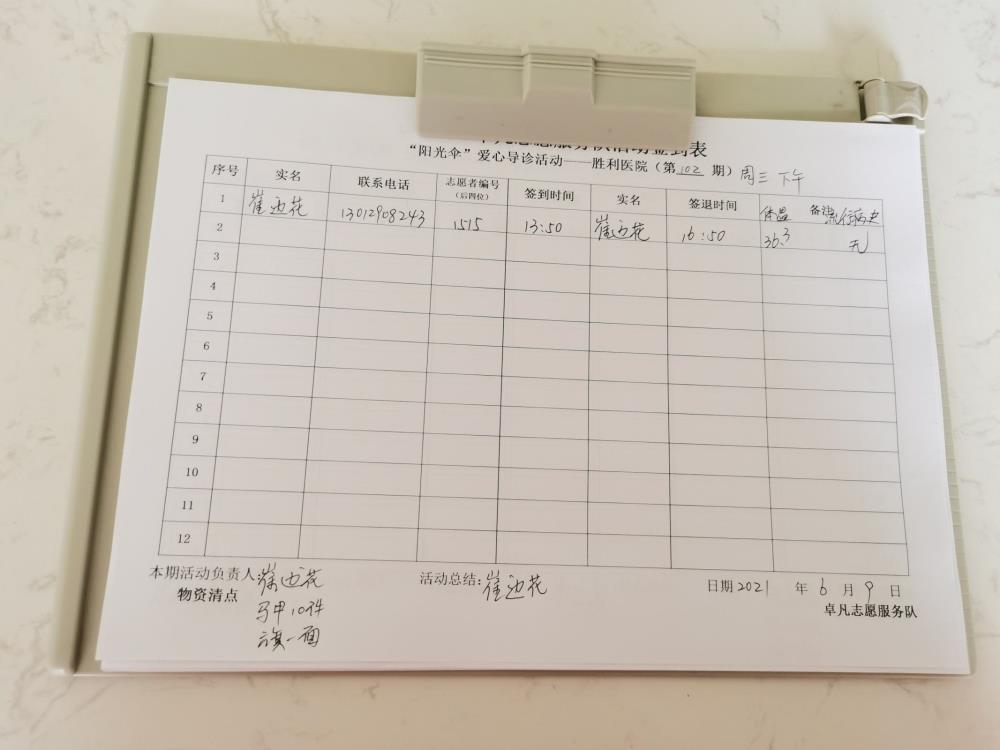 卓凡志愿服务队活动签到表
“阳光伞”爱心导诊活动——胜利医院（第102期）周三 下午
序号 实名 联系电话 志愿者编号（后四位） 签到时间 实名 签退时间 备注 体温 流行病史
1 崔边花 13012908243 1515 13:50 崔边花 16:50 36.3 无
2
3
4
5
6
7
8
9
10
11
12
本期活动负责人 崔边花 活动总结：崔边花 日期2021年6月9日
物资清点 马甲10件 卓凡志愿服务队
旗一面